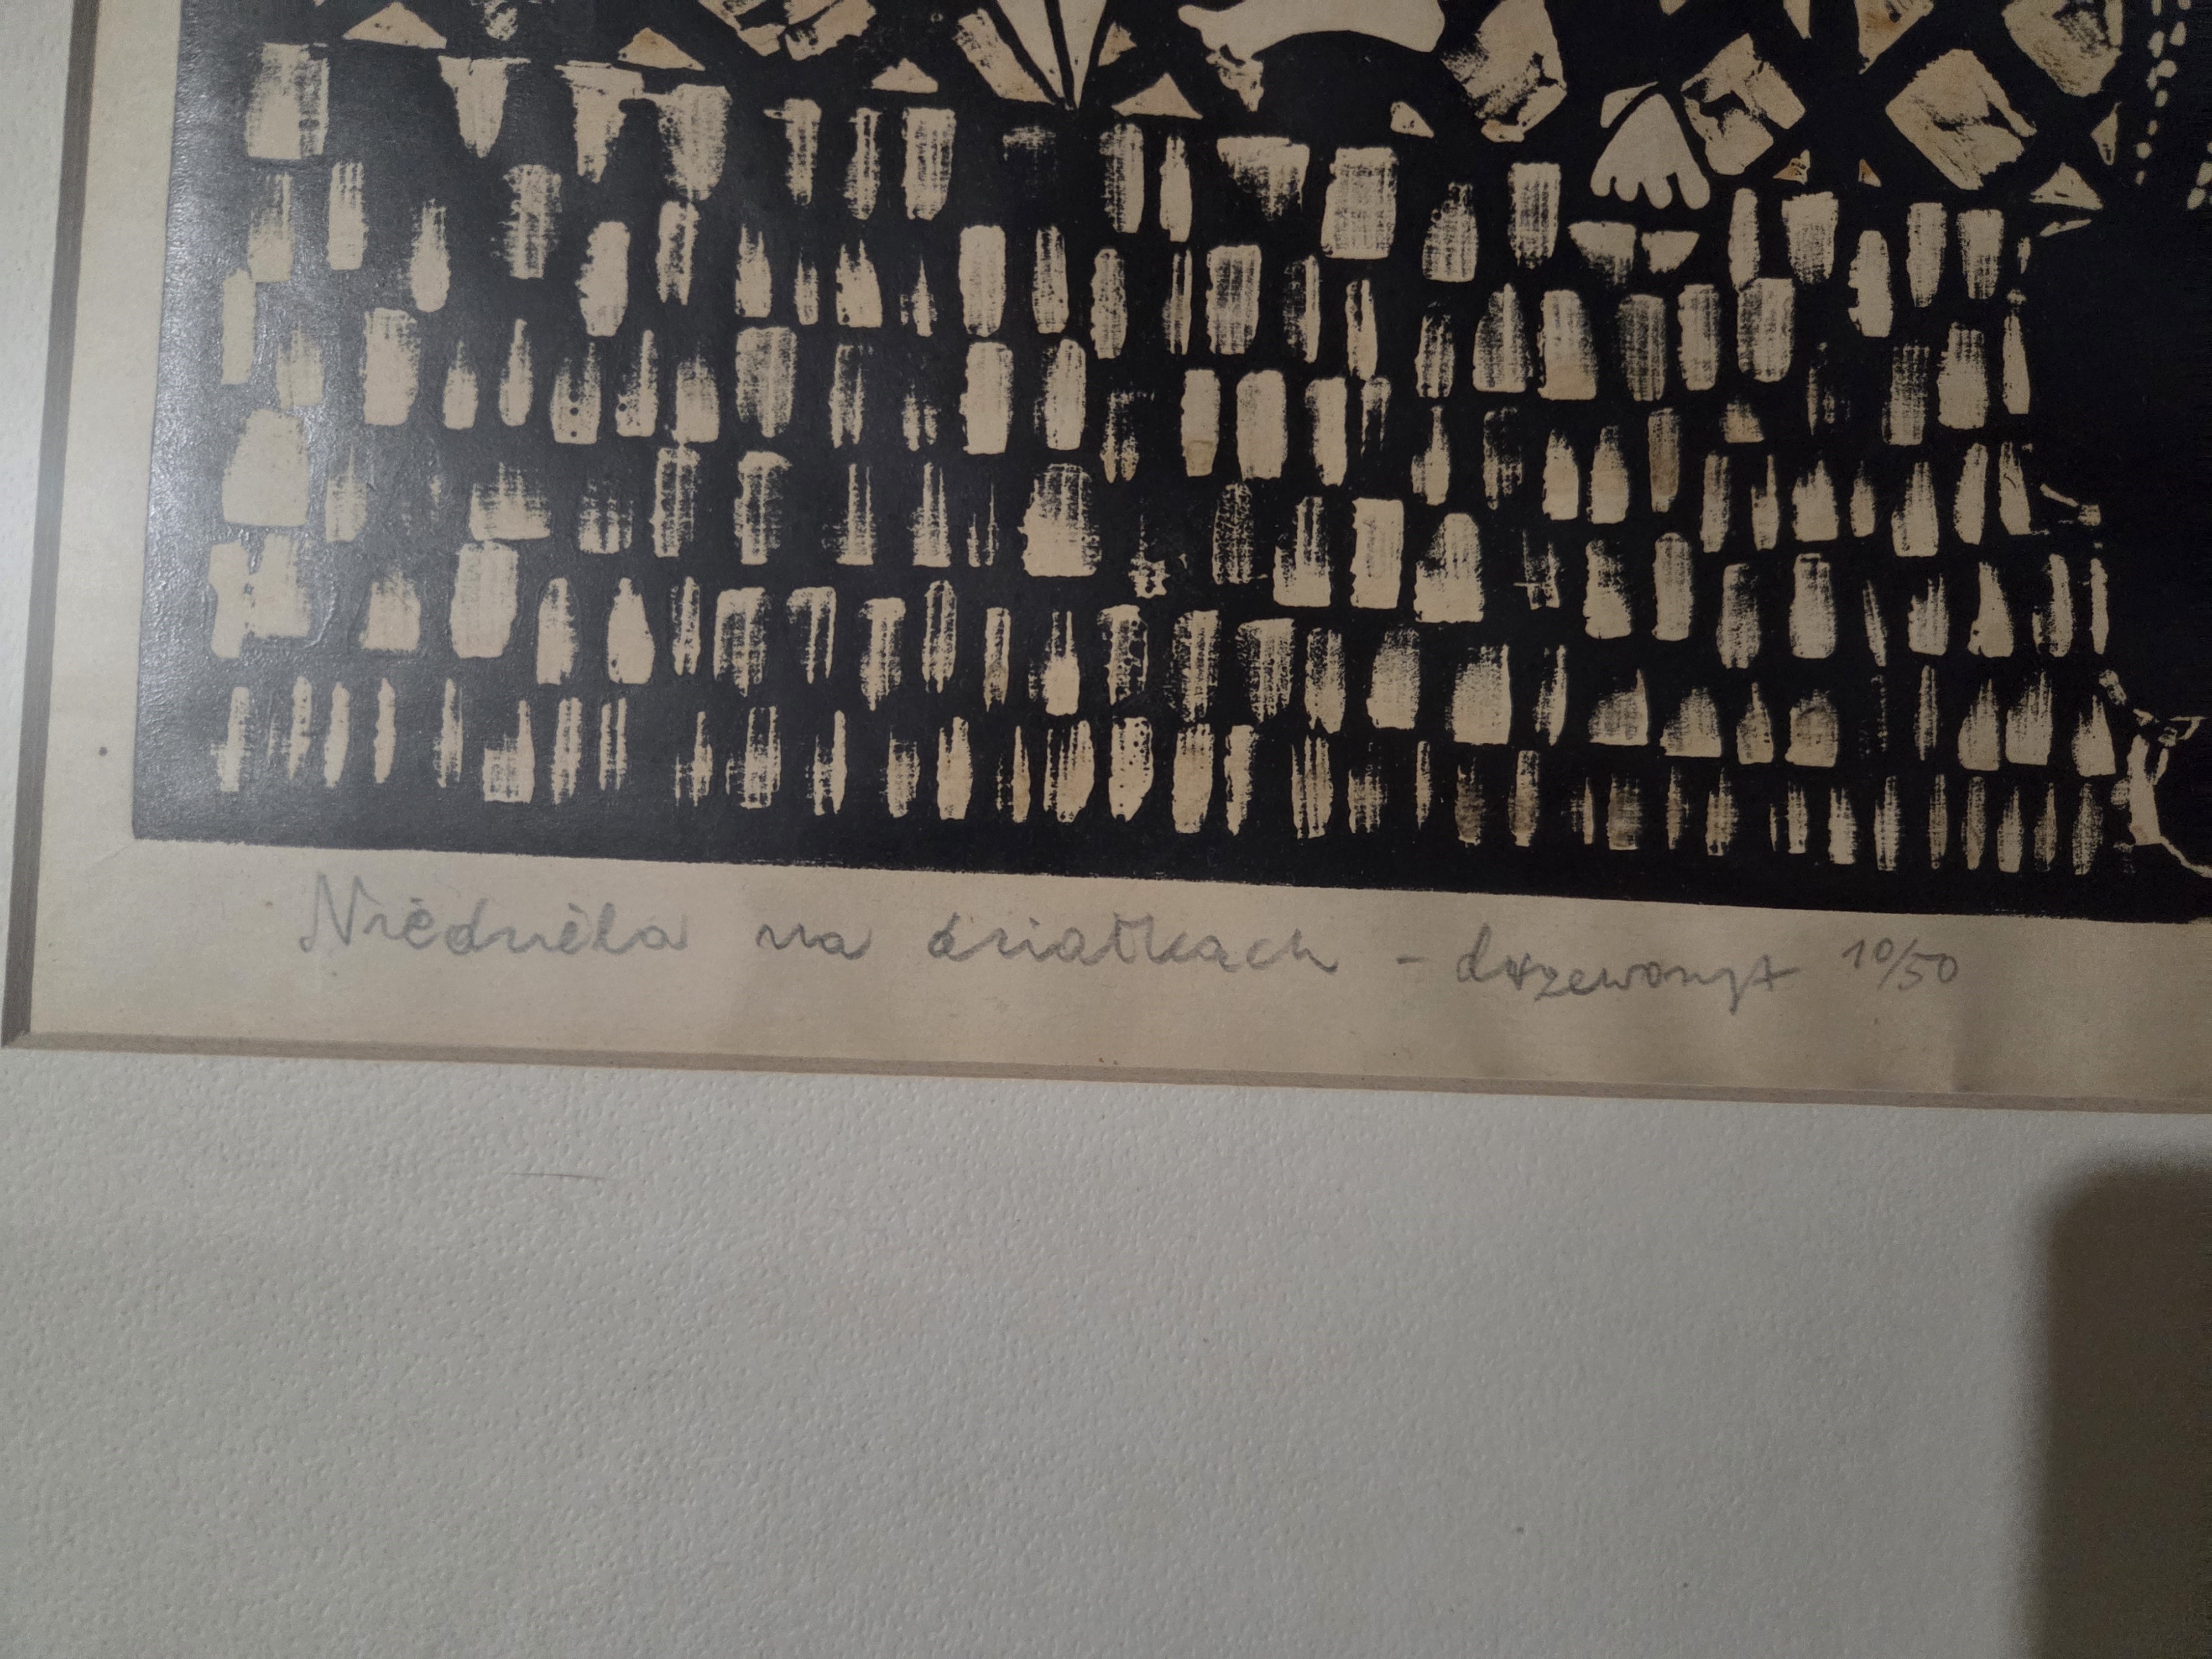 Niedziela na działkach - drzeworyt 10/50